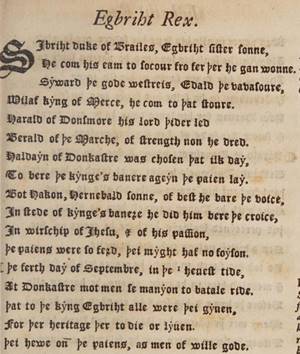 Egbriht Rex.
SIbriht duke of Brailes, Egbriht sister sonne,
He com his eam to socour fro fer þer he gan wonne.
Sẏward þe gode westreis, Edald þe vavasoure,
Wilaf kẏng of Merce, he com to þat stoure.
Harald of Donsmore his lord þider led
Berald of þe Marche, of strength non he dred.
Haldaẏn of Donkastre was chosen þat ilk daẏ,
To bere þe kẏnge's banere ageẏn þe paien laẏ.
Bot Hakon, Hernebald sonne, of best he bare þe voice,
In stede of kẏnge's banere he did him bere þe croice,
In wirschip of Jhesu, & of his passion,
Þe paiens were so ferd, þei mẏght haf no foẏson.
Þe ferth daẏ of Septembre, in þe ' hervest tide,
At Donkastre mot men se manẏon to batale ride.
Þat to þe kẏng Egbriht alle were þei gẏuen,
For þer heritage þer to die or lẏuen.
Þei hewe on þe paiens, as men of wille gode.